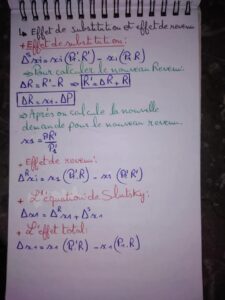 ↳ Effet de substitution et effet de revenu
+ Effet de substitution:
Δˢxi = xi (P'i. R') - xi (Pi. R)
⇒ Pour calculer le nouveau Revenu
ΔR = R' - R ⇒ R' = ΔR + R
ΔR = x1 . ΔP
⇒ Après on calcule la nouvelle
demande pour le nouveau revenu.
+ Effet de revenu:
+ L'équation de Slutsky:
Δx1 = Δᴿx1 + Δˢx1
+ L'effet total:
Δx1 = x1 (P'. R) - x1 (P1. R)